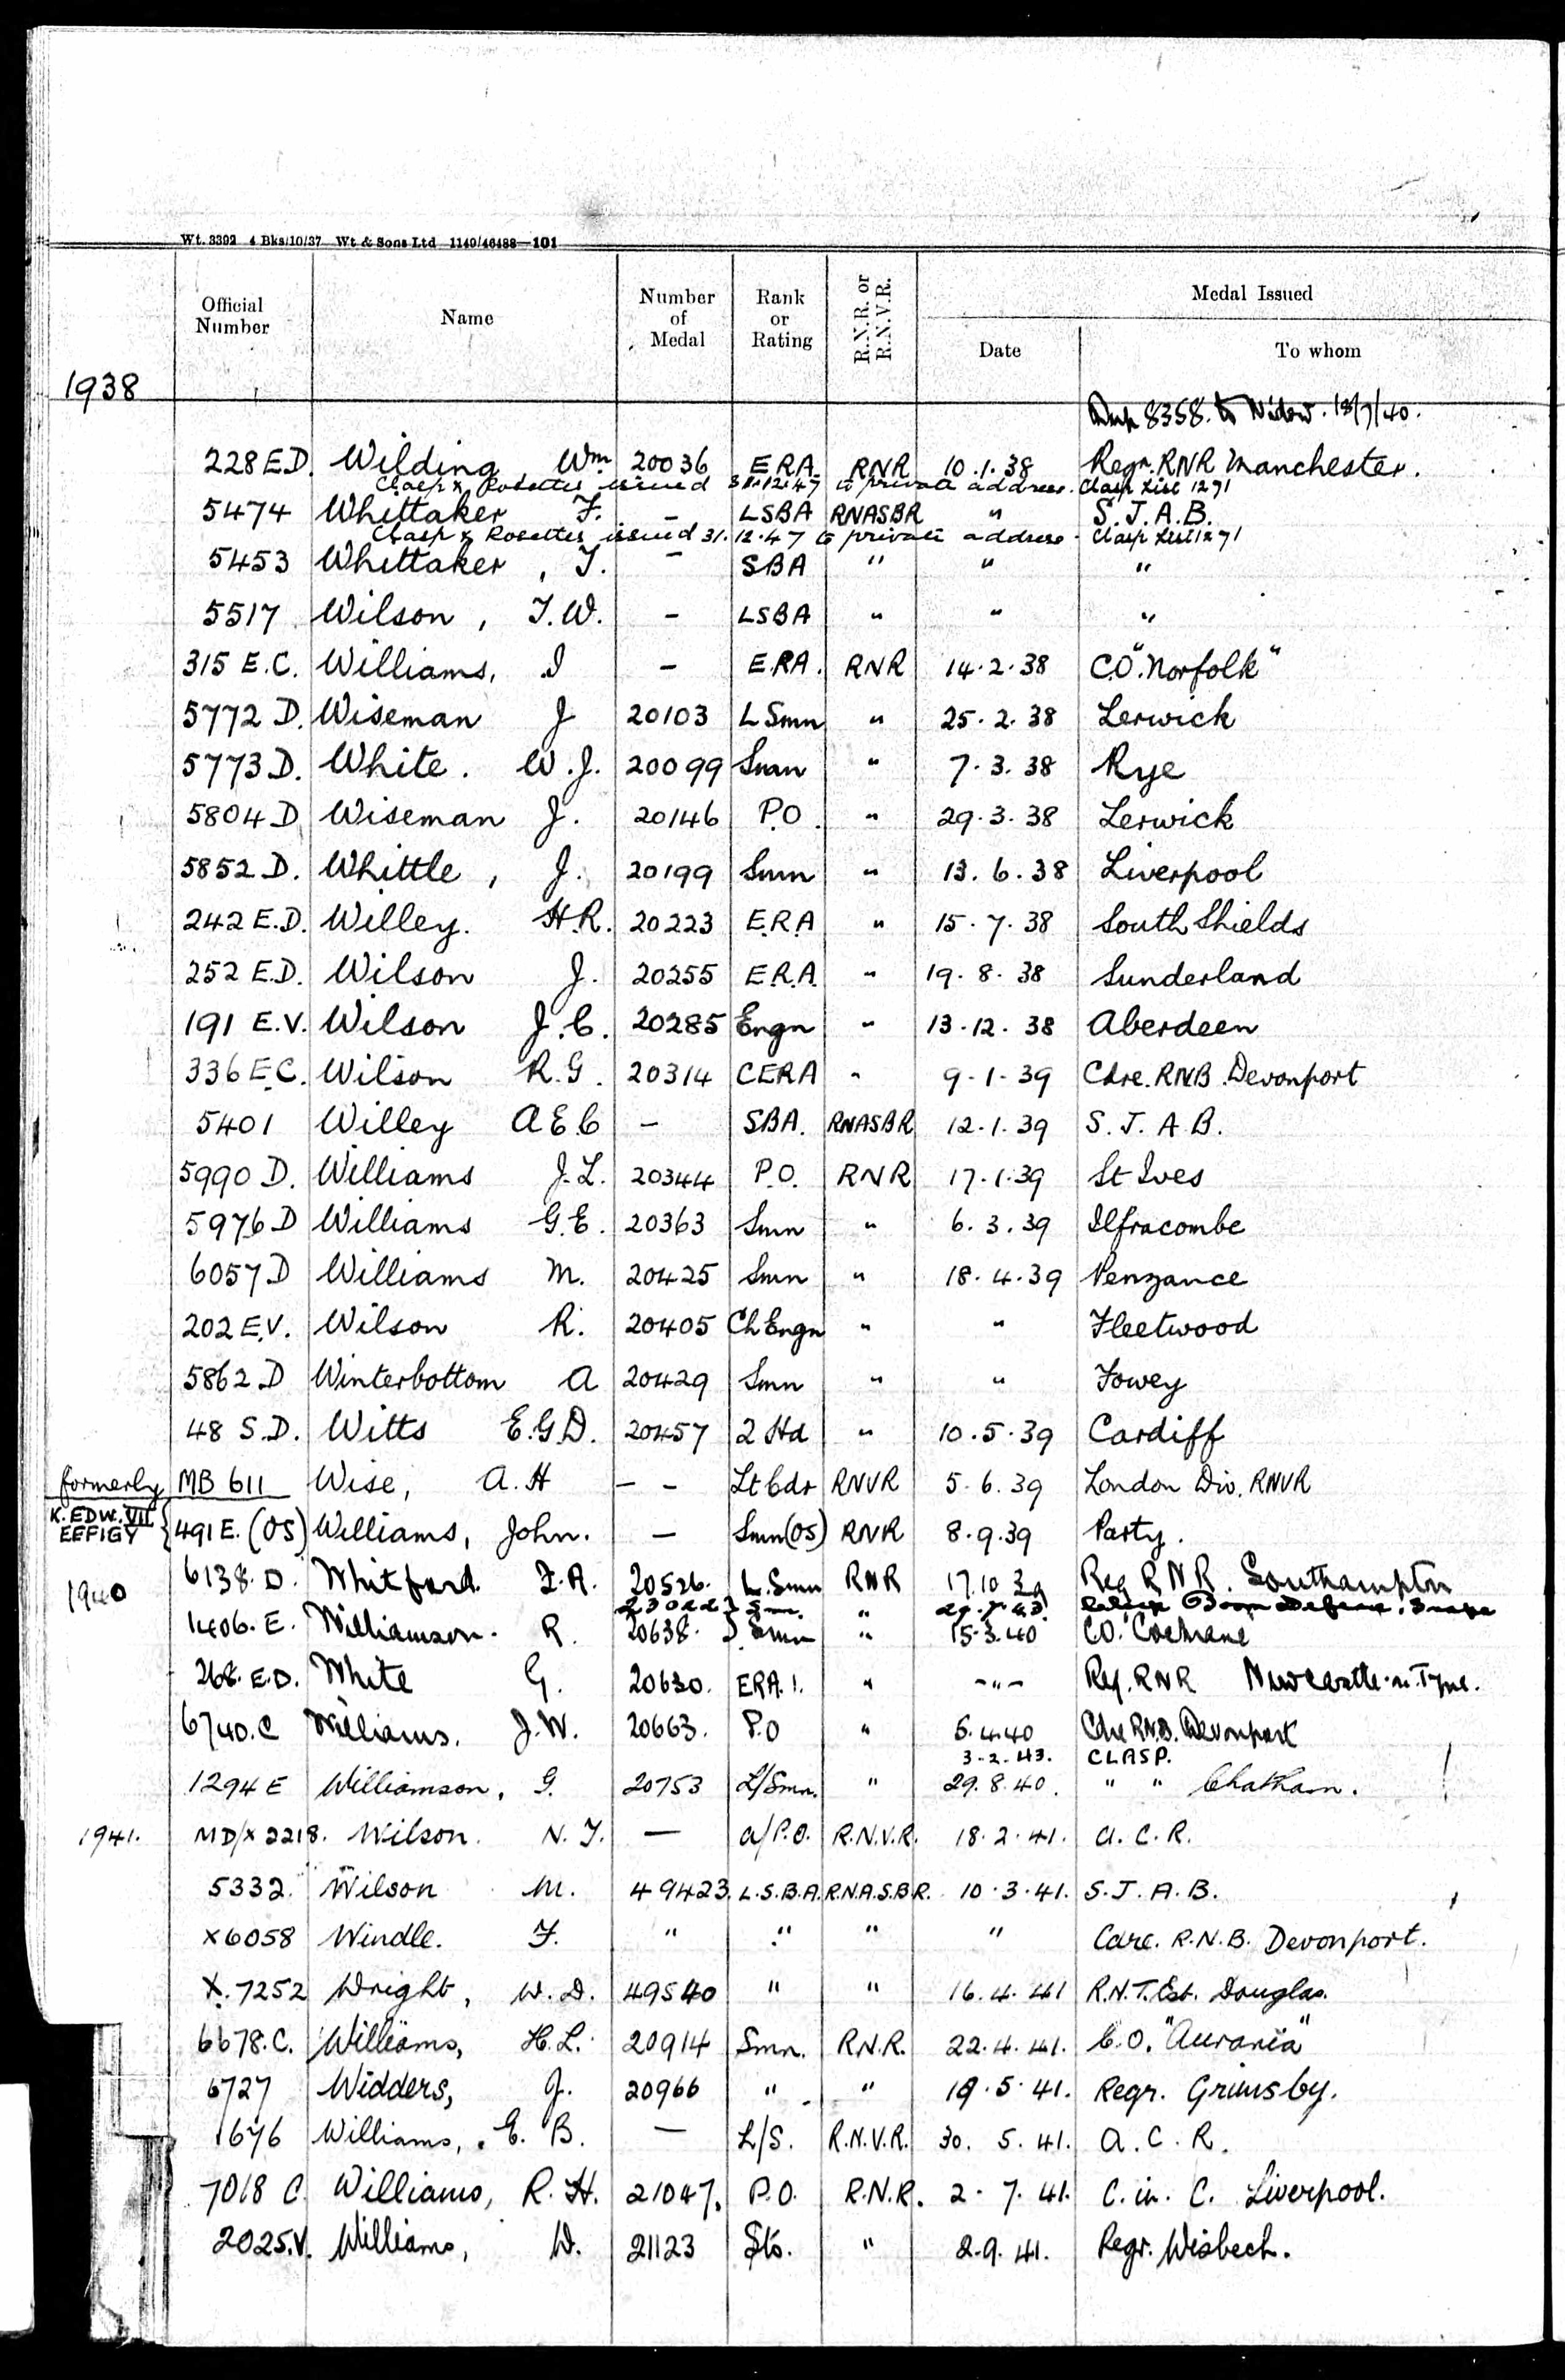 Wt. 3392 4 Bks/10/37 Wt & Sons Ltd 1140/46488—101
Official Number Name Number of Medal Rank or Rating R.N.R. or R.N.V.R. Medal Issued
Date To whom
1938
8358. to Widow. 18/7/40.
228 E.D. Wilding, Wm 20036 E.R.A. RNR 10.1.38 Regr. RNR Manchester.
Clasp & Rosettes issued 31.12.47 to private address. Clasp List 1271
5474 Whittaker F. – LSBA RNASBR " S.J.A.B.
Clasp & Rosettes issued 31.12.47 to private address. Clasp List 1271
5453 Whittaker, T. – SBA " " "
5517 Wilson, T.W. – LSBA " " "
315 E.C. Williams, I – E.R.A. RNR 14.2.38 C.O. "Norfolk"
5772 D. Wiseman J 20103 L Smn " 25.2.38 Lerwick
5773 D. White. W.J. 20099 Smn " 7.3.38 Rye
5804 D Wiseman J. 20146 P.O. " 29.3.38 Lerwick
5852 D. Whittle, J. 20199 Smn " 13.6.38 Liverpool
242 E.D. Willey. H.R. 20223 E.R.A " 15.7.38 South Shields
252 E.D. Wilson J. 20255 E.R.A. " 19.8.38 Sunderland
191 E.V. Wilson J.C. 20285 Engn " 13.12.38 Aberdeen
336 E.C. Wilson R.G. 20314 CERA " 9.1.39 Cdre. RNB. Devonport
5401 Willey A E C – SBA. RNASBR 12.1.39 S.J.A.B.
5990 D. Williams J.L. 20344 P.O. RNR 17.1.39 St Ives
5976 D Williams G.E. 20363 Smn " 6.3.39 Ilfracombe
6057 D Williams M. 20425 Smn " 18.4.39 Penzance
202 E.V. Wilson R. 20405 Ch Engn " " Fleetwood
5862 D Winterbottom A 20429 Smn " " Fowey
48 S.D. Witts E.G.D. 20457 2 Hd " 10.5.39 Cardiff
formerly MB 611 Wise, A.H – – Lt Cdr RNVR 5.6.39 London Div. RNVR
K. EDW. VII EFFIGY { 491 E. (OS) Williams, John. – Smn (OS) RNR 8.9.39 Party.
1940 6138. D. Whitford. F.A. 20526. L. Smn RNR 17.10.39 Reg RNR. Southampton
23022 } Sm.
1406. E. Williamson. R. 20638. } Smn " 15.3.40 CO. Cochrane
268. E.D. White G. 20630. ERA. 1. " -"- Reg. RNR Newcastle-on-Tyne.
6740. C Williams. J.W. 20663. P.O " 5.4.40 Cdre RNB. Devonport
3-2.43. CLASP.
1294 E Williamson, G. 20753 L/Smn. " 29.8.40. " " Chatham.
1941. MD/X 2218. Wilson. N.T. — A/P.O. R.N.V.R. 18.2.41. A.C.R.
5332. Wilson M. 49423. L.S.B.A. R.N.A.S.B.R. 10.3.41. S.J.A.B.
X6058 Windle. F. " " " " Cdre. R.N.B. Devonport.
X.7252 Wright, W.D. 49540 " " 16.4.41 R.N.T.Est. Douglas.
6678.C. Williams, H.L. 20914 Smn. R.N.R. 22.4.41. C.O. "Aurania"
6727 Widders, J. 20966 " " 19.5.41. Regr. Grimsby.
1676 Williams, E.B. — L/S. R.N.V.R. 30.5.41. A.C.R.
7018 C. Williams, R.H. 21047. P.O. R.N.R. 2.7.41. C. in. C. Liverpool.
2025.V. Williams, W. 21123 Sto. " 2.9.41. Regr. Wisbech.